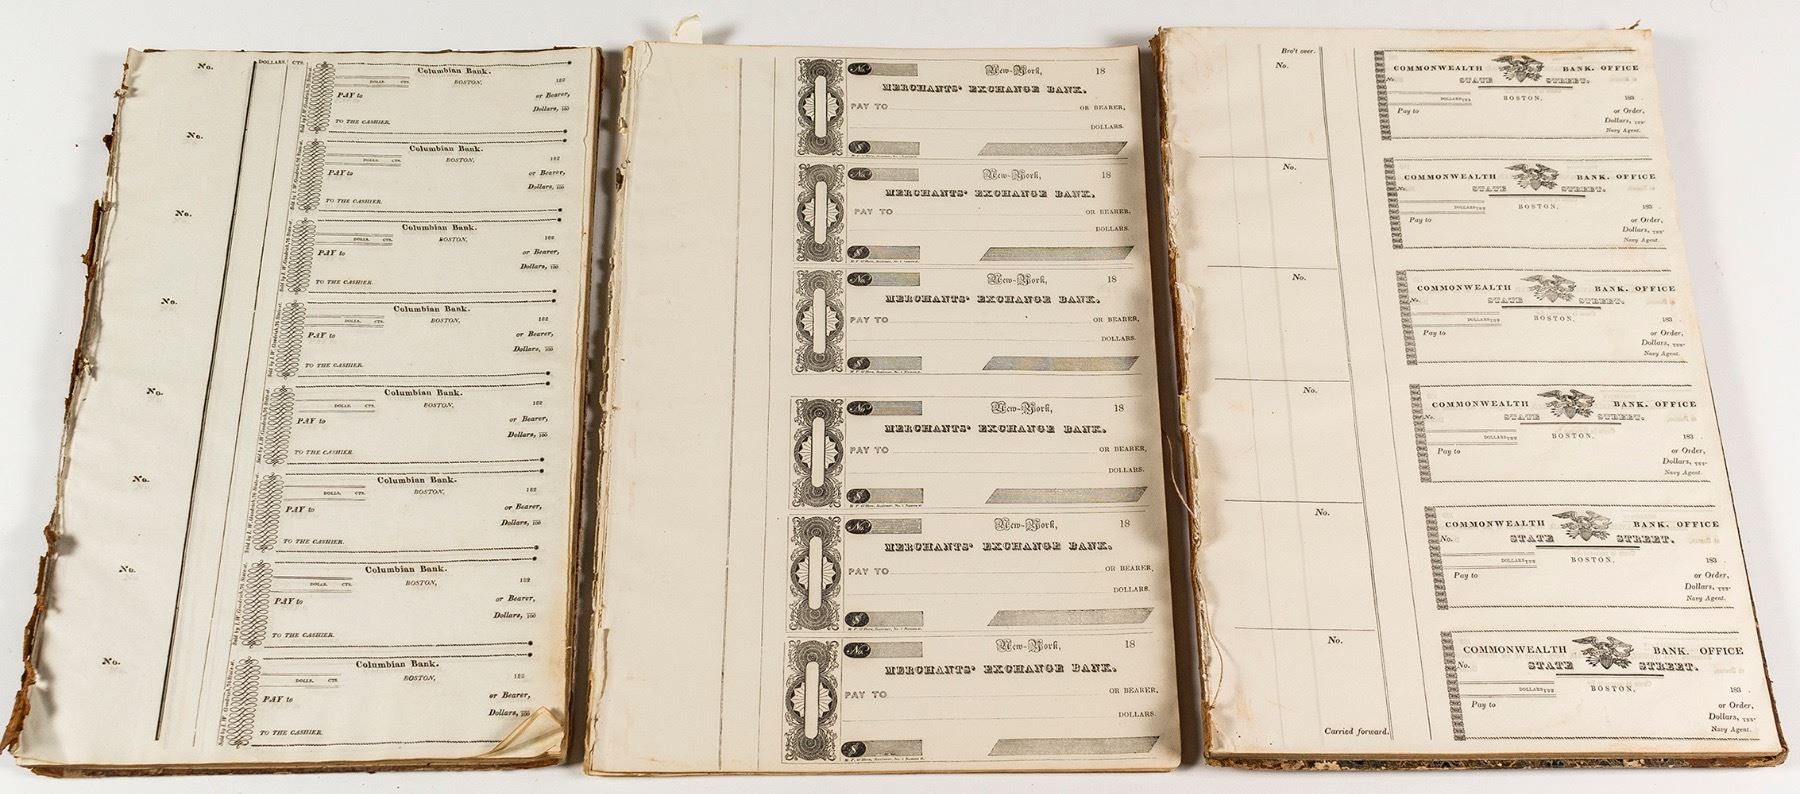 DOLLARS. CTS.
No. Columbian Bank.
DOLLS. CTS. BOSTON, 182
PAY to or Bearer,
Dollars, 100
TO THE CASHIER.
No. Columbian Bank.
DOLLS. CTS. BOSTON, 182
PAY to or Bearer,
Dollars, 100
TO THE CASHIER.
No. Columbian Bank.
DOLLS. CTS. BOSTON, 182
PAY to or Bearer,
Dollars, 100
TO THE CASHIER.
No. Columbian Bank.
DOLLS. CTS. BOSTON, 182
PAY to or Bearer,
Dollars, 100
TO THE CASHIER.
No. Columbian Bank.
DOLLS. CTS. BOSTON, 182
PAY to or Bearer,
Dollars, 100
TO THE CASHIER.
No. Columbian Bank.
DOLLS. CTS. BOSTON, 182
PAY to or Bearer,
Dollars, 100
TO THE CASHIER.
No. Columbian Bank.
DOLLS. CTS. BOSTON, 182
PAY to or Bearer,
Dollars, 100
TO THE CASHIER.
No. Columbian Bank.
DOLLS. CTS. BOSTON, 182
PAY to or Bearer,
Dollars, 100
TO THE CASHIER.
No. New-York, 18
MERCHANTS' EXCHANGE BANK.
PAY TO OR BEARER,
DOLLARS.
$
No. New-York, 18
MERCHANTS' EXCHANGE BANK.
PAY TO OR BEARER,
DOLLARS.
$
No. New-York, 18
MERCHANTS' EXCHANGE BANK.
PAY TO OR BEARER,
DOLLARS.
$
No. New-York, 18
MERCHANTS' EXCHANGE BANK.
PAY TO OR BEARER,
DOLLARS.
$
No. New-York, 18
MERCHANTS' EXCHANGE BANK.
PAY TO OR BEARER,
DOLLARS.
$
No. New-York, 18
MERCHANTS' EXCHANGE BANK.
PAY TO OR BEARER,
DOLLARS.
$
Bro't over.
No. COMMONWEALTH BANK. OFFICE
No. STATE STREET.
DOLLARS BOSTON, 183
Pay to or Order,
Dollars,
Navy Agent.
No. COMMONWEALTH BANK. OFFICE
No. STATE STREET.
DOLLARS BOSTON, 183
Pay to or Order,
Dollars,
Navy Agent.
No. COMMONWEALTH BANK. OFFICE
No. STATE STREET.
DOLLARS BOSTON, 183
Pay to or Order,
Dollars,
Navy Agent.
No. COMMONWEALTH BANK. OFFICE
No. STATE STREET.
DOLLARS BOSTON, 183
Pay to or Order,
Dollars,
Navy Agent.
No. COMMONWEALTH BANK. OFFICE
No. STATE STREET.
DOLLARS BOSTON, 183
Pay to or Order,
Dollars,
Navy Agent.
No. COMMONWEALTH BANK. OFFICE
No. STATE STREET.
DOLLARS BOSTON, 183
Pay to or Order,
Dollars,
Carried forward. Navy Agent.